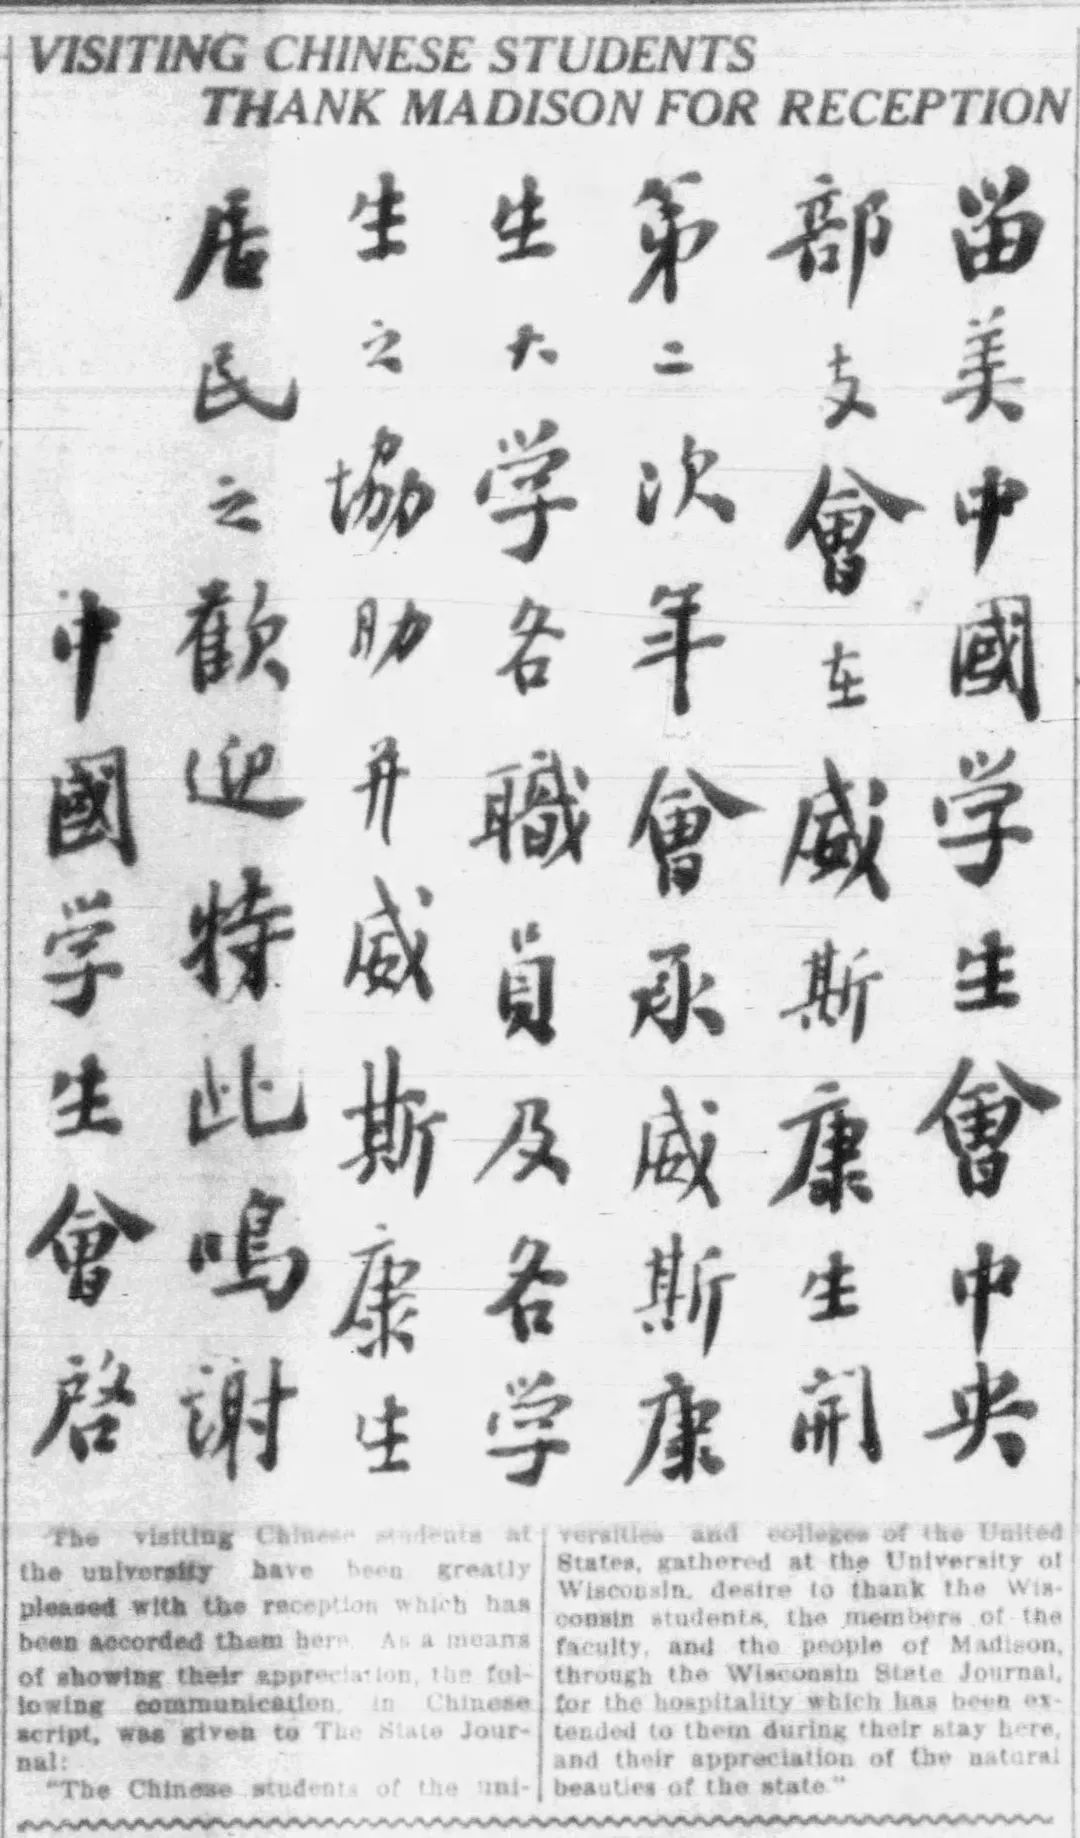 VISITING CHINESE STUDENTS
THANK MADISON FOR RECEPTION
畱美中國学生會中央
部支會在威斯康生開
第二次年會承威斯康
生大学各職員及各学
生之協助并威斯康生
居民之歡迎特此鳴謝
中國学生會啓
The visiting Chinese students at
the university have been greatly
pleased with the reception which has
been accorded them here. As a means
of showing their appreciation, the fol-
lowing communication, in Chinese
script, was given to The State Jour-
nal:
"The Chinese students of the uni-
versities and colleges of the United
States, gathered at the University of
Wisconsin, desire to thank the Wis-
consin students, the members of the
faculty, and the people of Madison,
through the Wisconsin State Journal,
for the hospitality which has been ex-
tended to them during their stay here,
and their appreciation of the natural
beauties of the state."